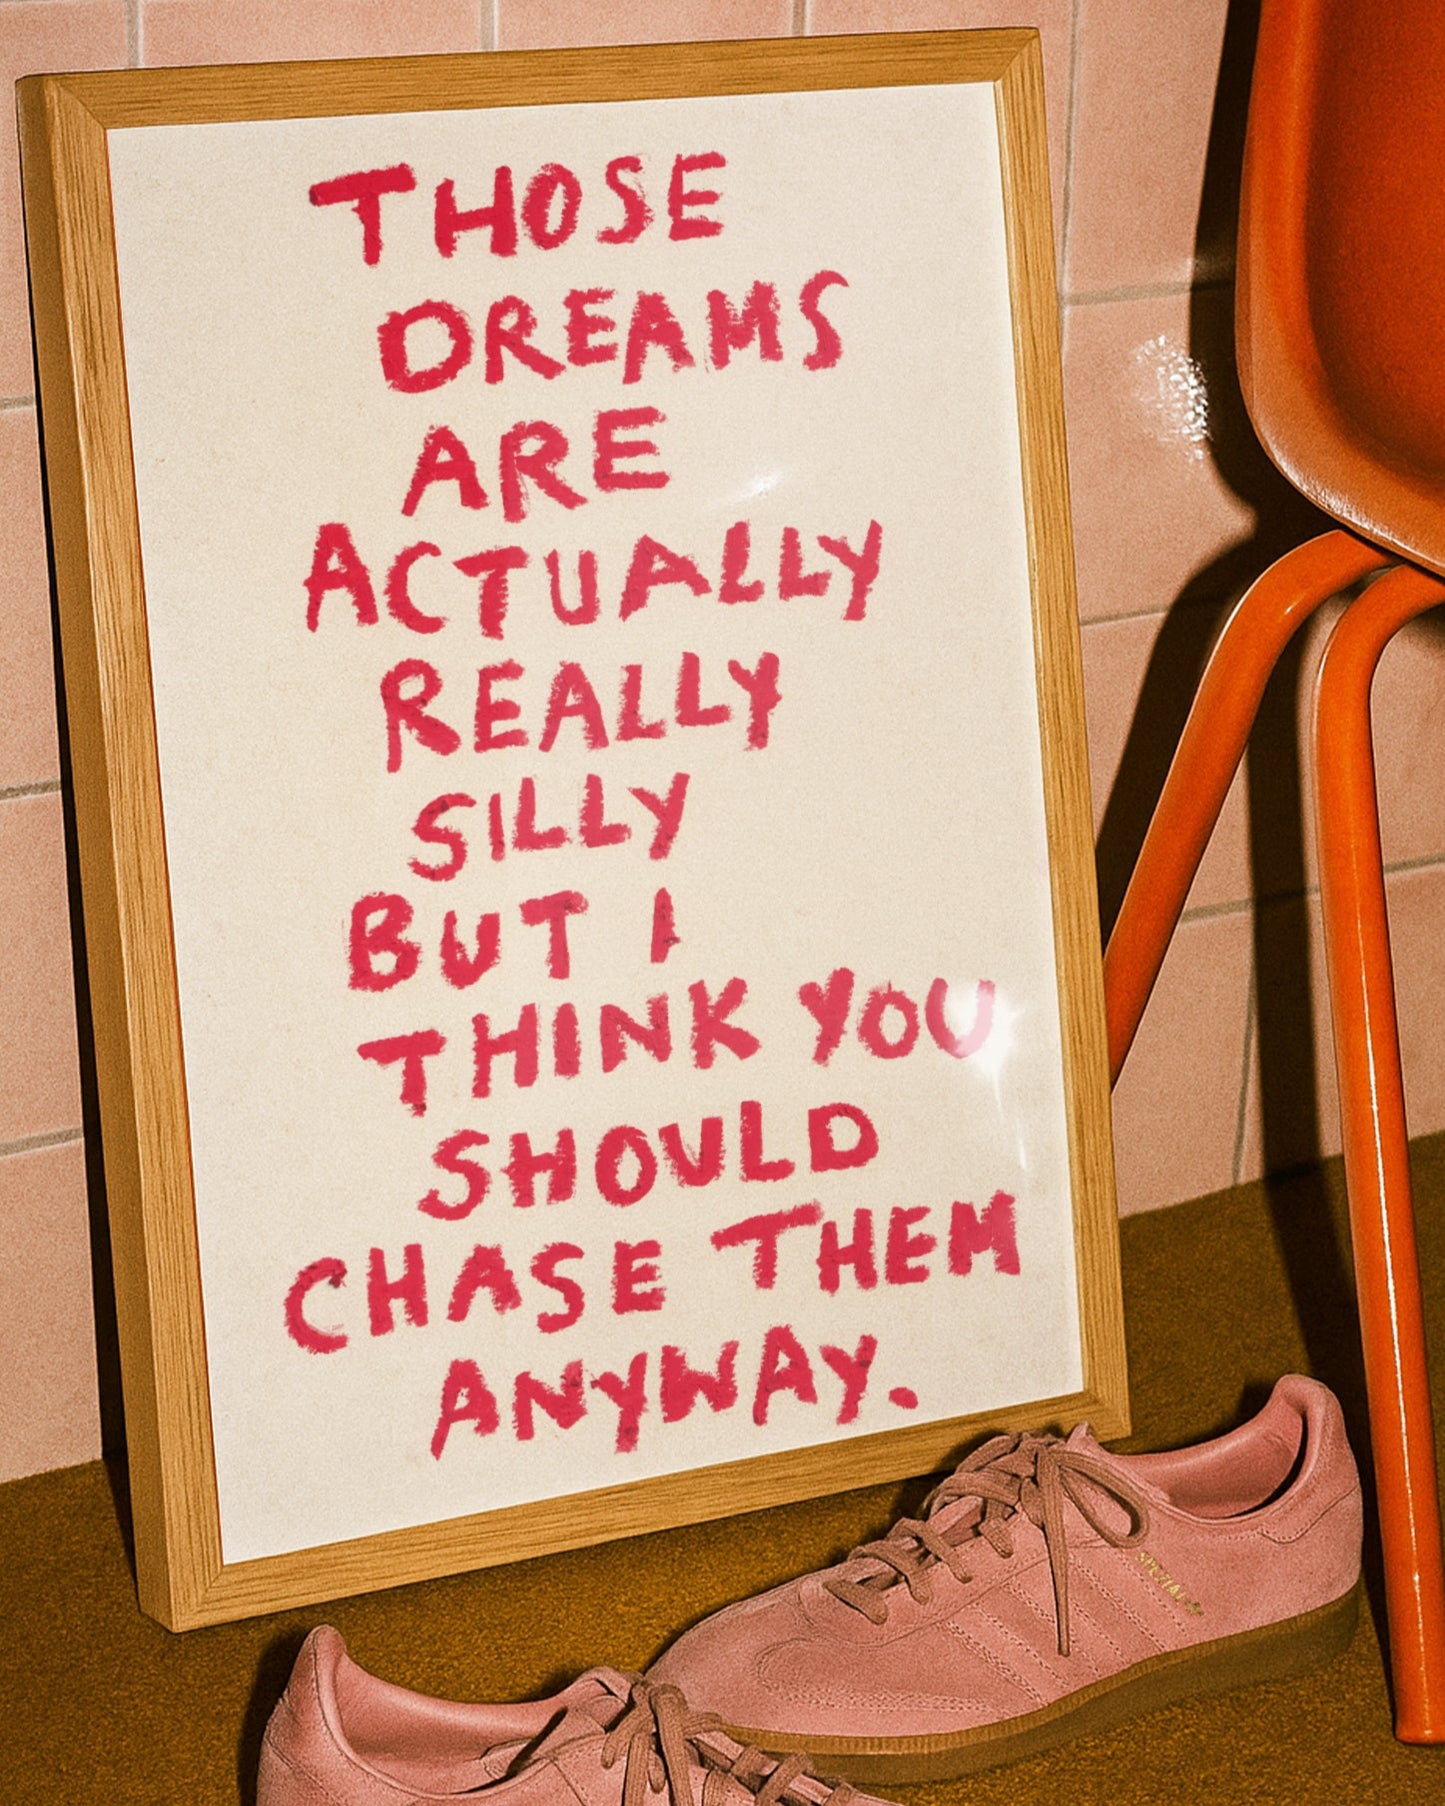 THOSE
DREAMS
ARE
ACTUALLY
REALLY
SILLY
BUT I
THINK YOU
SHOULD
CHASE THEM
ANYWAY.
SPEZIAL